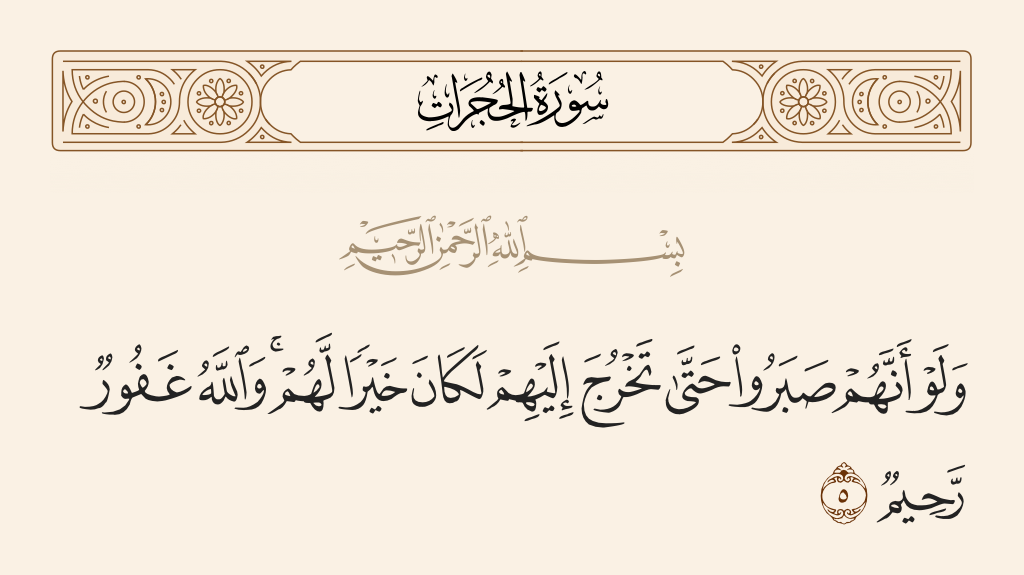 سُورَةُ الحُجُرَاتِ
بِسْمِ ٱللَّهِ ٱلرَّحْمَٰنِ ٱلرَّحِيمِ
وَلَوْ أَنَّهُمْ صَبَرُوا۟ حَتَّىٰ تَخْرُجَ إِلَيْهِمْ لَكَانَ خَيْرًا لَّهُمْ ۚ وَٱللَّهُ غَفُورٌ
رَّحِيمٌ ٥